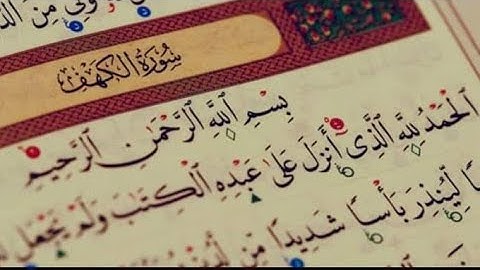 وَلِيٍّ مِنَ
سُورَةُ الْكَهْفِ
بِسْمِ اللَّهِ الرَّحْمَٰنِ الرَّحِيمِ
الْحَمْدُ لِلَّهِ الَّذِى أَنْزَلَ عَلَىٰ عَبْدِهِ الْكِتَابَ وَلَمْ يَجْعَلْ
لِيُنْذِرَ بَأْسًا شَدِيدًا مِنْ